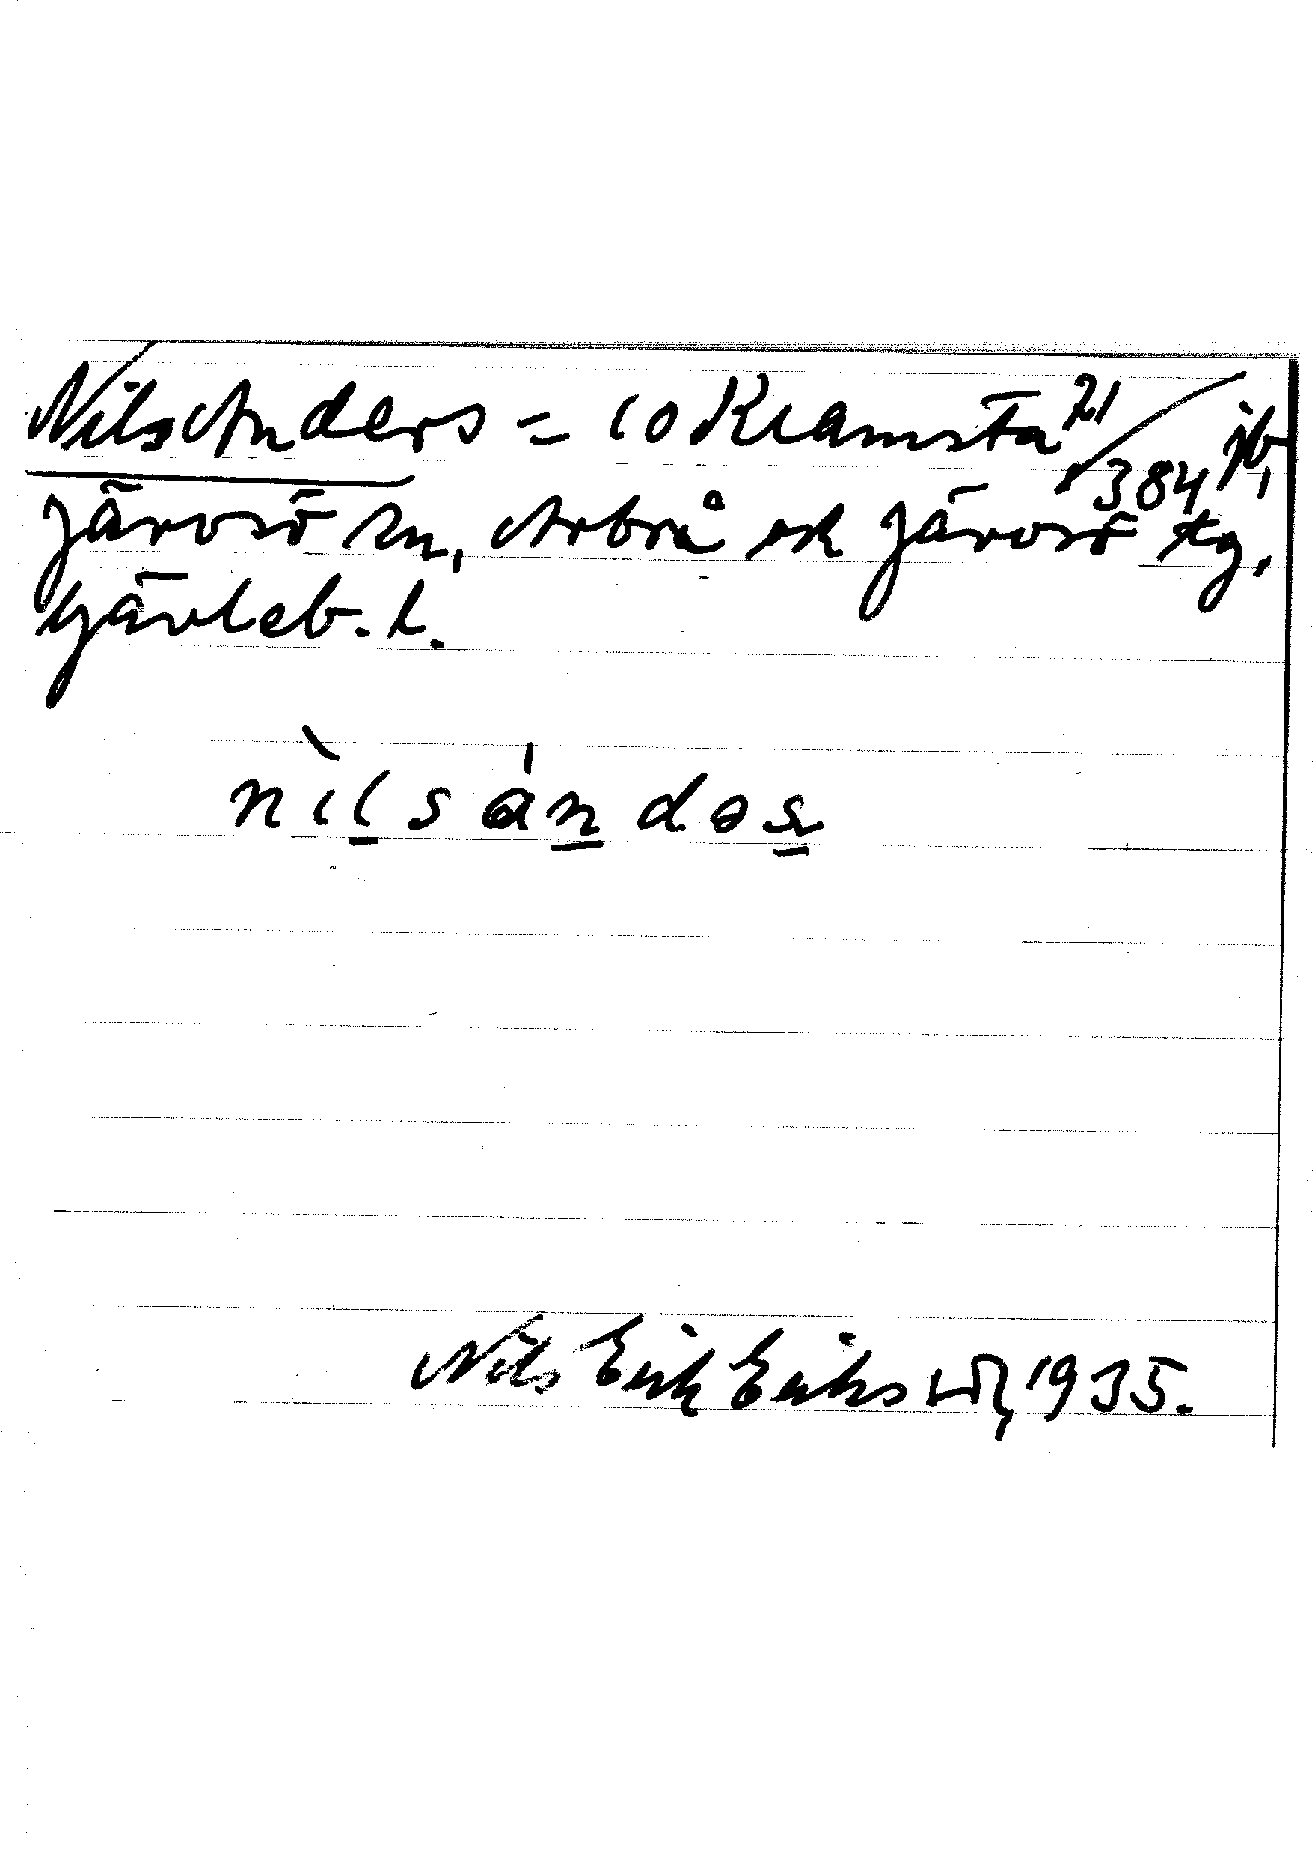 Nils Anders = 10 Kramsta 21/384 jb,
Järvsö sn, Arbrå ok Järvsö tg,
Gävleb. l.
nìlsándəs
Nils Erik Eriks 1935.